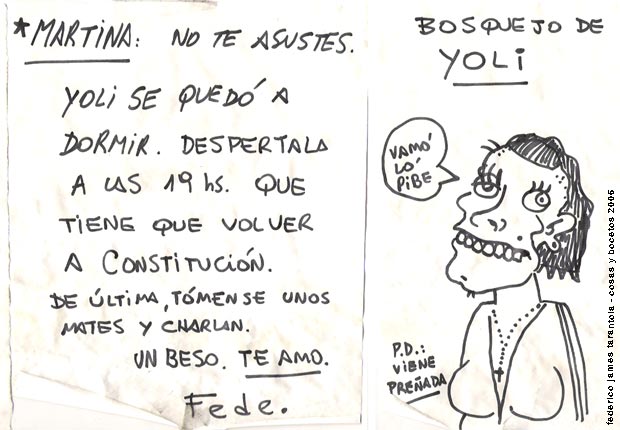 *MARTINA: NO TE ASUSTES.
YOLI SE QUEDÓ A
DORMIR. DESPERTALA
A LAS 19 hs. QUE
TIENE QUE VOLVER
A CONSTITUCIÓN.
DE ÚLTIMA, TÓMENSE UNOS
MATES Y CHARLAN.
UN BESO. TE AMO.
Fede.
BOSQUEJO DE
YOLI
VAMÓ'
LO'
PIBE
P.D.:
VIENE
PREÑADA
federico james tarantola - cosas y bocetos 2006